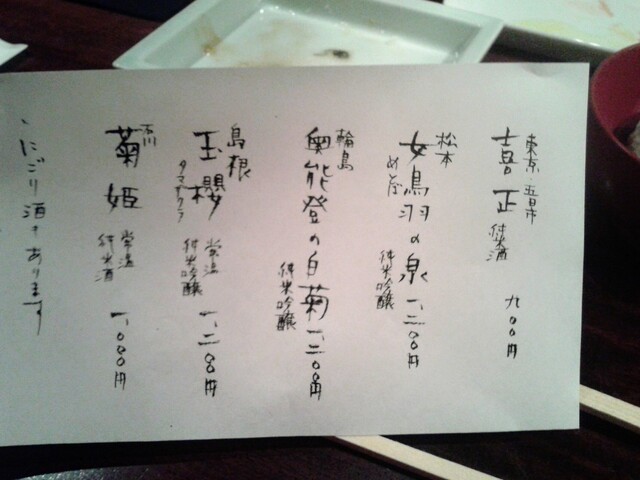 東京・五日市
喜正 純米酒 九〇〇円
松本
女鳥羽の泉 純米吟醸 一、二〇〇円
輪島
奥能登の白菊 純米吟醸 一、二〇〇円
島根
玉櫻 常温 純米吟醸 一、二〇〇円
タマザクラ
石川
菊姫 常温 純米酒 一、〇〇〇円
、にごり酒もあります